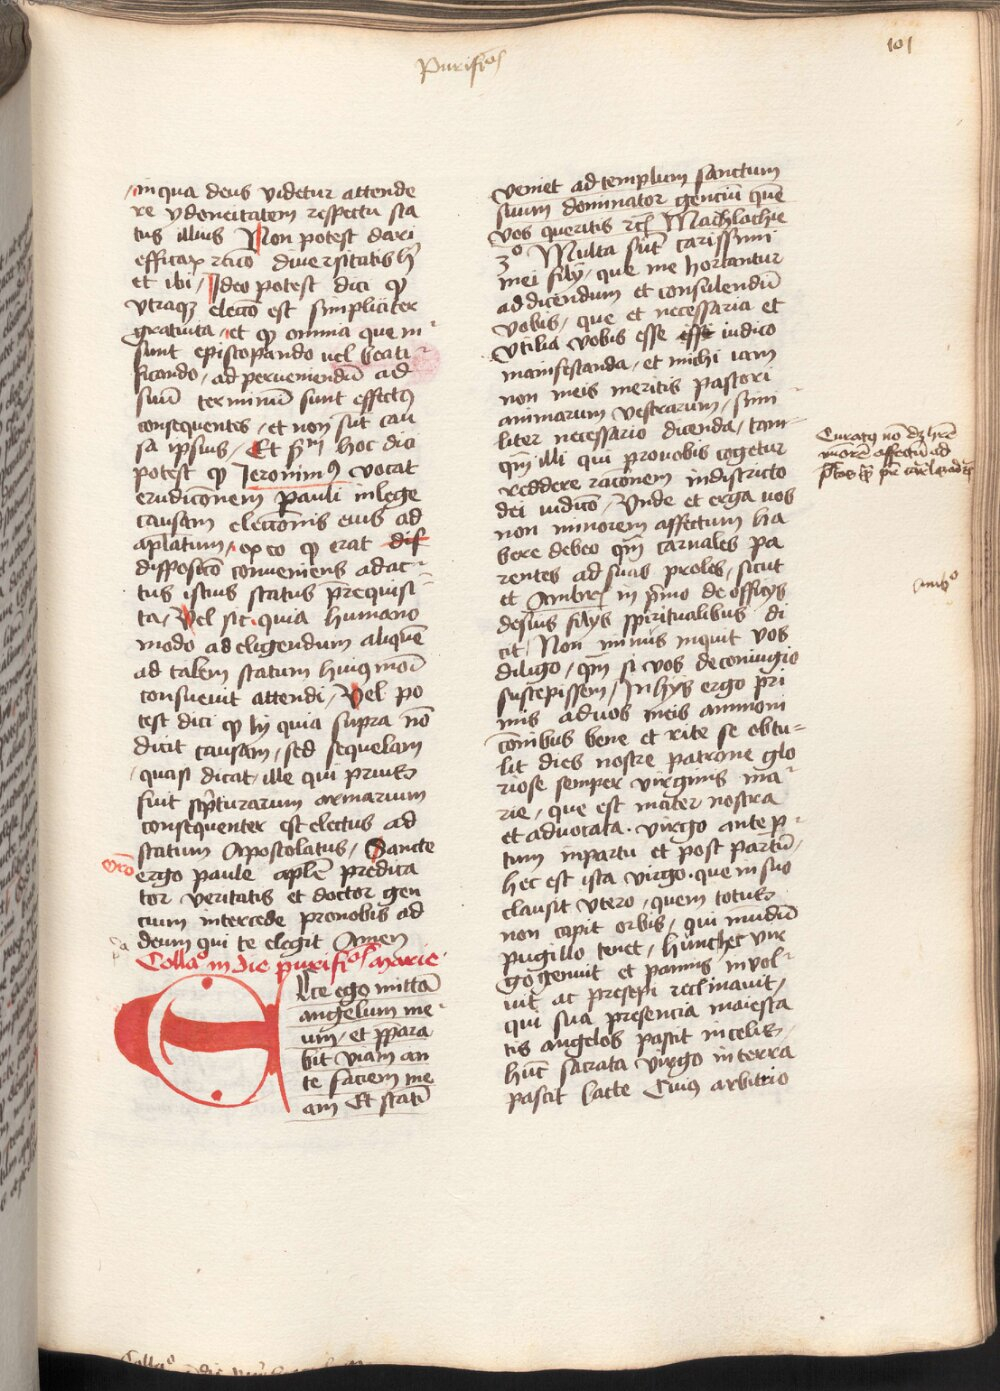 Purificõis
101
in qua deus videtur attende
re ydoneitatem respectu sta
tus illius Non potest dari
efficax rãco diuersitatis h̃
et ibi / Ideo potest dici qp
vtraqꝫ eleccõ est simpliciter
gratuita / et qp omnia que in-
sunt episcopando uel beati-
ficando / ad perueniendũ ad
suũ terminũ sunt effectꝰ
consequentes / et non sũt cau
sa ipsius / Et hoc dici
potest qp Ieronimꝰ vocat
erudicõnem pauli in lege
causam eleccõnis eius ad
apl̃atum / ex eo qp erat dis
disposicõ conueniens ad ac-
tus istius status p̃requisi-
ta / Vel sic quia humano
modo ad eligendum aliquẽ
ad talem statum huiꝰmoi
consueuit attendi / Vel po
test dici qp hĩ quia supra nõ
dicit causam / sed sequelam
quasi dicat / ille qui prius
fuit scp̃turarum armarium
consequenter est electus ad
statum apostolatus / Sancte
Orõ
ergo paule apl̃e predica
tor veritatis et doctor gen
cium intercede pro nobis ad
deum qui te elegit Amen
Collaº in die purificõis marie
Ecce ego mittã
angelum me-
um / et p̃para
bit viam an
te faciem me
am Et statĩ
veniet ad templum sanctum
suum dominator genciũ quẽ
vos queritis Machlachie
3º Multa sũt carissimi
mei filij / que me hortantur
ad dicendum et consulendũ
vobis / que et necessaria et
vtilia vobis esse esse iudico
manifestanda / et michi iam
non meis meritis pastori
animarum vestrarum / simi
liter necessario dicenda / tam-
qm̃ illi qui pro uobis cogetur
reddere racõnem in districto
dei iudicõ / Vnde et erga uos
non minorem affectum ha
bere debeo qm̃ carnales pa
rentes ad suas proles / sicut
et Ambrosꝰ in p̃mo de officijs
de suis filijs spiritualibus di
cit / Non minus inquit vos
diligo / qm̃ si vos de coniugio
suscepissem / In hijs ergo pri
mis ad uos meis ammoni
cõnibus bene et rite se obtu-
lit dies nostre patrone glo
riose semper virginis ma-
rie / que est mater nostra
et aduocata . virgo ante p-
tum in partu et post partũ /
hec est ista virgo . que in suo
clausit vtero / quem totus
non capit orbis / qui mũdũ
pugillo tenet / hunc hec vir
go genuit et pannis inuol-
uit ac presepi reclinauit /
qui sua presencia maiesta
tis angelos pascit in celis /
hũc sacrata virgo in terra
pascit lacte Cuius arbitrio
Curatꝰ nõ dꝫ hr̃e
morẽ affectũ ad
Ambrº